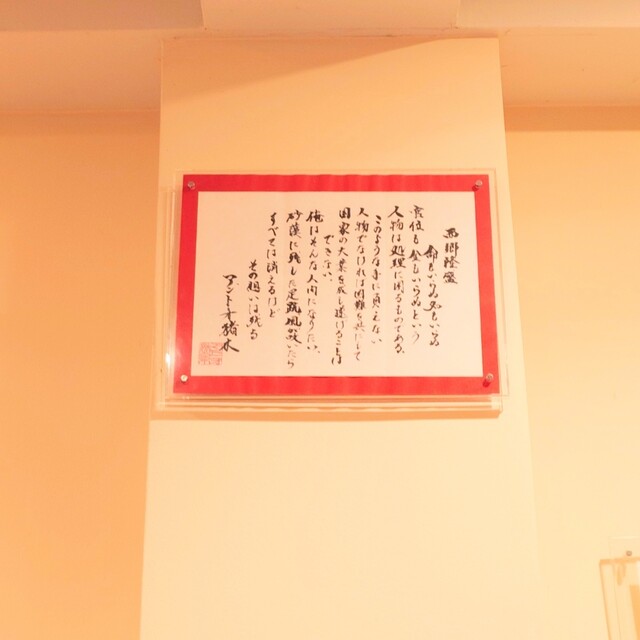 西郷隆盛
命もいらぬ名もいらぬ
官位も金もいらぬという
人物は処理に困るものである。
このような手に負えない
人物でなければ困難を共にして
国家の大業を成し遂げることは
できない。
俺はそんな人間になりたい。
砂漠に残した足跡風が吹いたら
すべては消えるけど
その想いは残る
アントニオ猪木